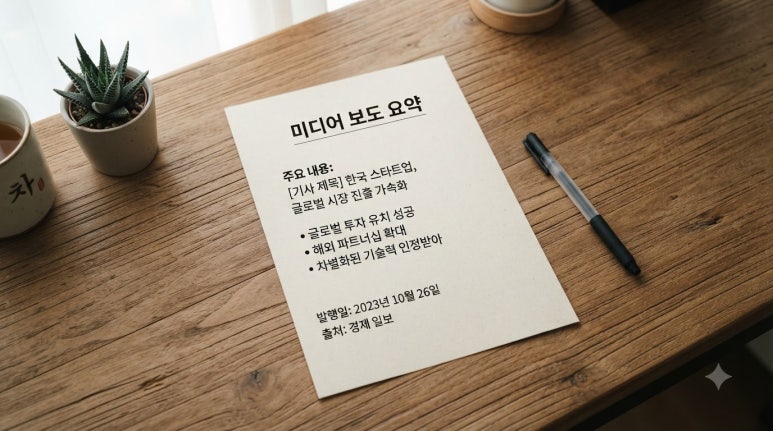 미디어 보도 요약
주요 내용:
[기사 제목] 한국 스타트업,
글로벌 시장 진출 가속화
• 글로벌 투자 유치 성공
• 해외 파트너십 확대
• 차별화된 기술력 인정받아
발행일: 2023년 10월 26일
출처: 경제 일보
차